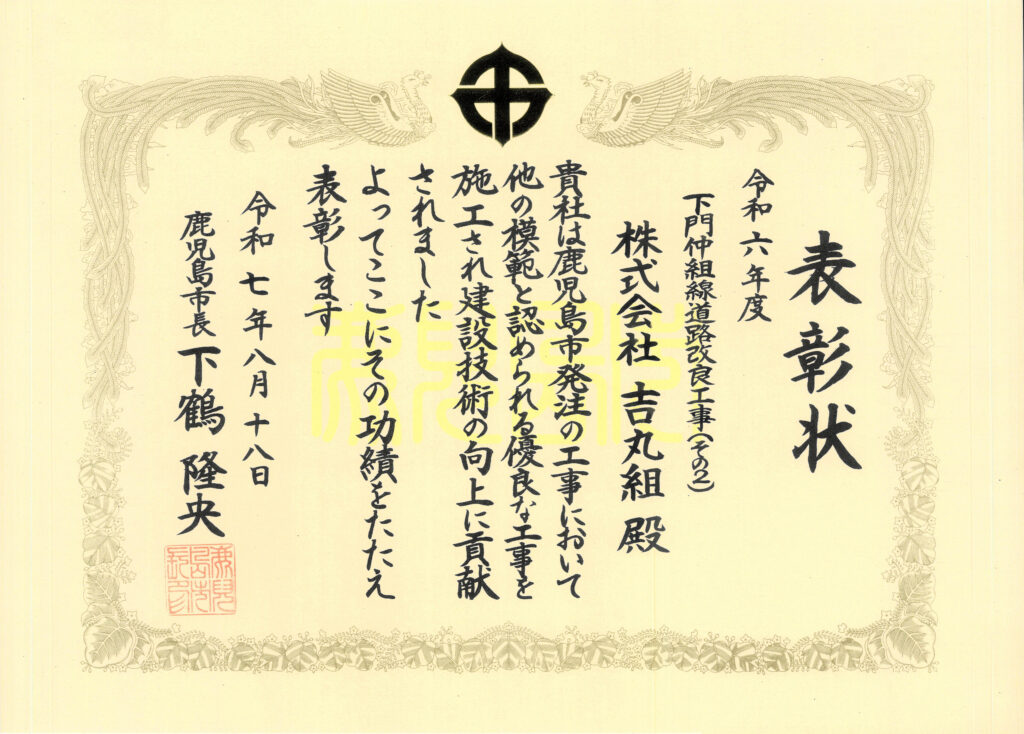 表彰状
令和六年度
下門仲組線道路改良工事(その2)
株式会社 吉丸組 殿
貴社は鹿児島市発注の工事において
他の模範と認められる優良な工事を
施工され建設技術の向上に貢献
されました
よってここにその功績をたたえ
表彰します
令和七年八月十八日
鹿児島市長 下鶴 隆央